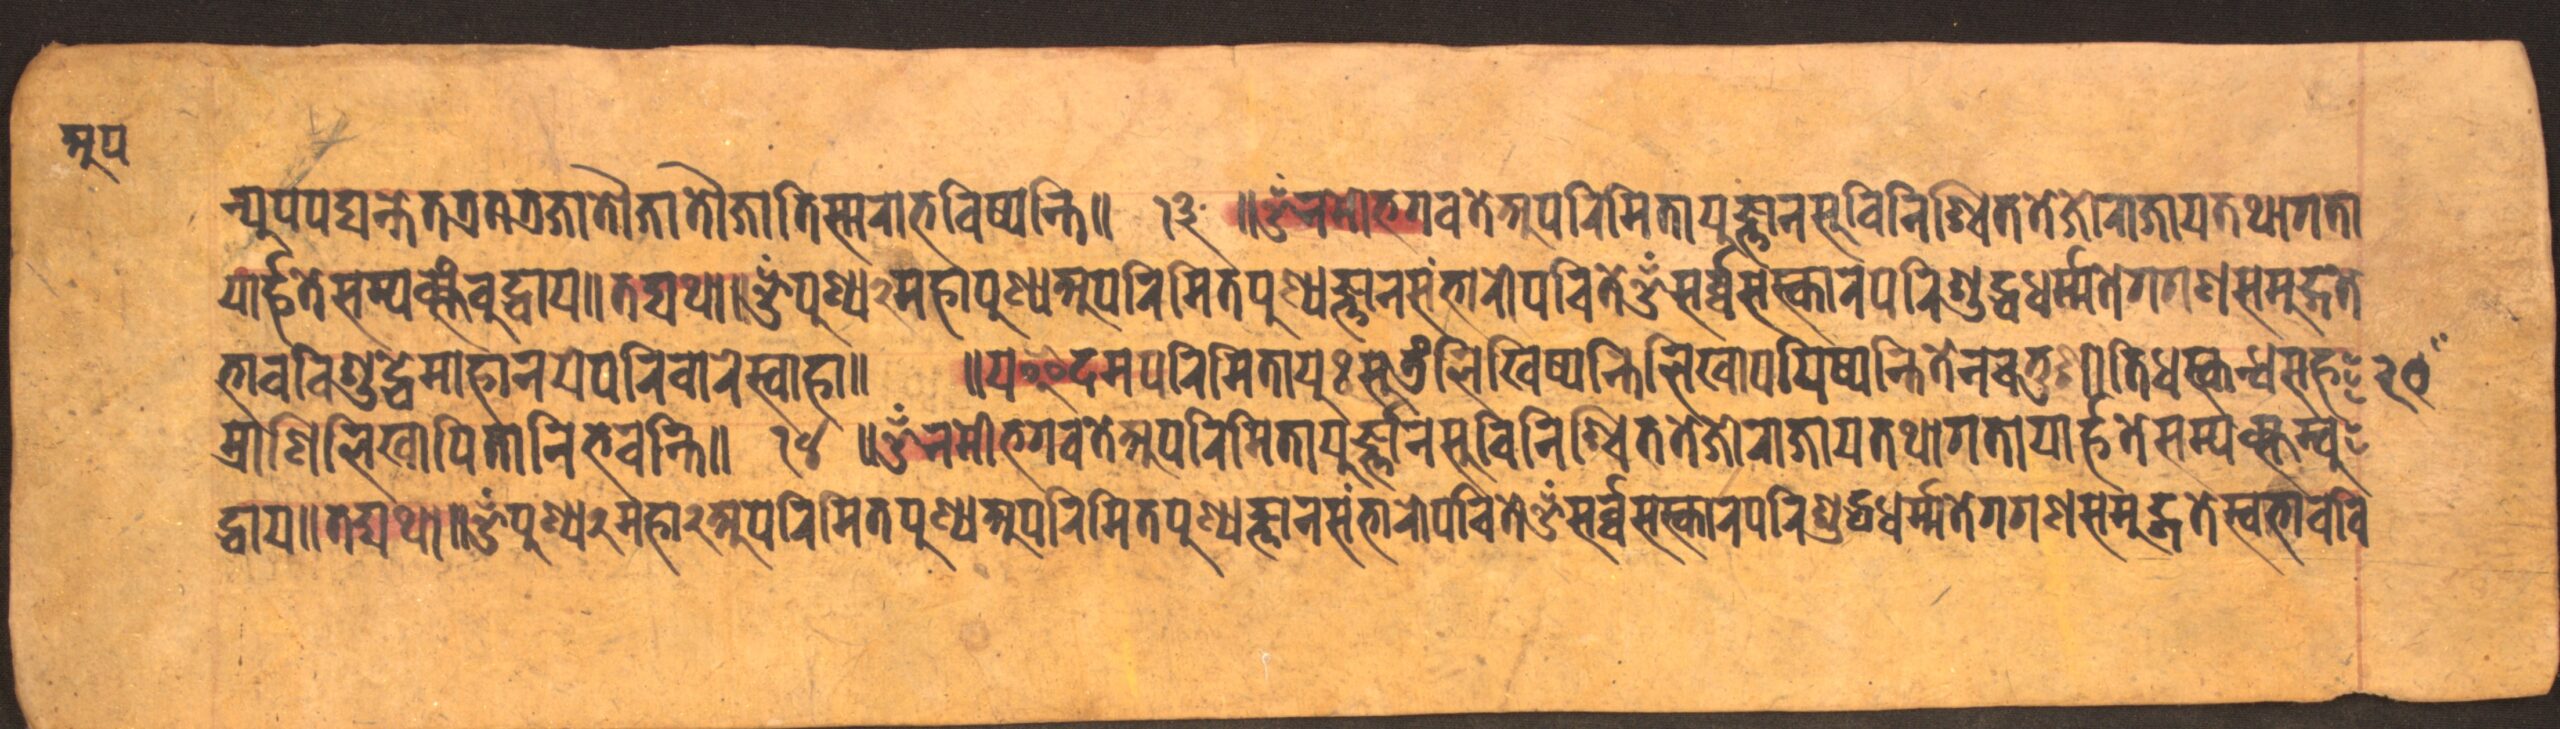 अप
न्युपपद्यन्तेतत्रतत्रजातौजातौजातिस्मराभविष्यन्ति॥ १३ ॥ॐनमोभगवतेअपरिमितायुर्ज्ञानसुविनिश्चिततेजोराजायतथागता
यार्हतेसम्यक्संबुद्धाय॥तद्यथा॥ॐपुण्य२महापुण्यअपरिमितपुण्यज्ञानसंभारोपचितेॐसर्व्वसंस्कारपरिशुद्धधर्म्मतेगगणसमुद्गते
भावविशुद्धेमाहानयेपरिवारेस्वाहा॥ ॥यइदमपरिमितायुःसूत्रंलिखिष्यन्तिलिखापयिष्यन्तितेनचतुरशीतिधर्मस्कन्धसह २०
स्राणिलिखापितानिभवन्ति॥ १४ ॥ॐनमोभगवतेअपरिमितायुर्ज्ञानसुविनिश्चिततेजोराजायतथागतायार्हतेसम्यक्सम्बु
द्धाय॥तद्यथा॥ॐपुण्य२महा२अपरिमितपुण्यअपरिमितपुण्यज्ञानसंभारोपचितेॐसर्व्वसंस्कारपरिशुद्धधर्म्मतेगगणसमुद्गतेस्वभाववि